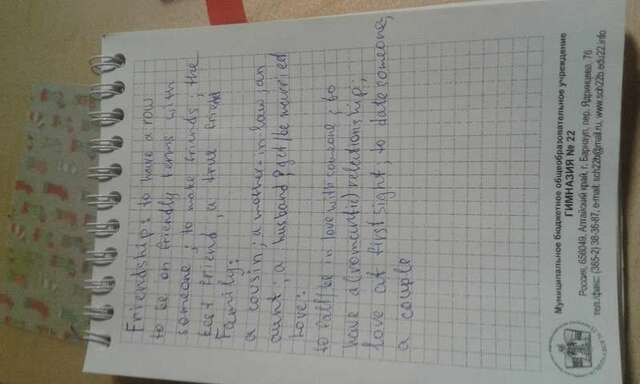 Friendship: to have a row
to be on friendly terms with
someone; to make friends; the
best friend, a true friend
Family:
a cousin; a mother-in-law; an
aunt; a husband; get/be married
Love:
to fall/be in love with someone; to
have a (romantic) relationship;
love at first sight; to date someone,
a couple
Муниципальное бюджетное общеобразовательное учреждение
ГИМНАЗИЯ № 22
Россия, 656049, Алтайский край, г. Барнаул, пер. Ядринцева, 76
тел./факс: (385-2) 38-36-87, e-mail: sch22b@mail.ru, www.sch22.edu22.info